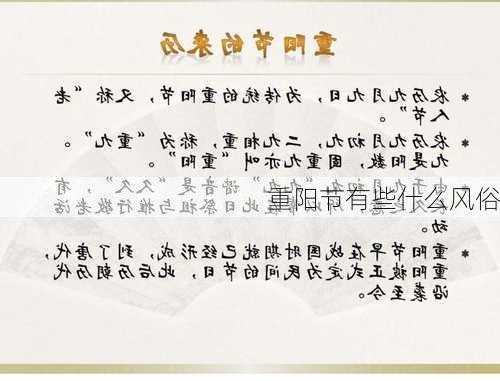 重阳节的来历
* 农历九月九日，为传统的重阳节，又称“老
人节”。
* 农历九月初九，二九相重，称为“重九”。
九是阳数，固重九亦叫“重阳”。
谐音是“久久”，有
此日祭祖与推行敬老活
动。
重阳节有些什么风俗
* 重阳节早在战国时就已经形成，到了唐代，
重阳被正式定为民间的节日，此后历朝历代
沿袭至今。